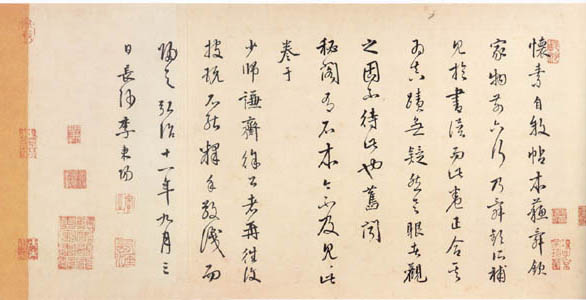 懷素自敘帖本蘇舜欽
家物前六行乃舜欽所補
見於書譜而此卷正合其
為真蹟無疑然具眼者觀
之固不待此也舊聞
秘閣有石本今不及見此
卷于
少師謙齋徐公再往復
披玩不能釋手敬識而
歸之弘治十一年九月三
日長沙李東陽